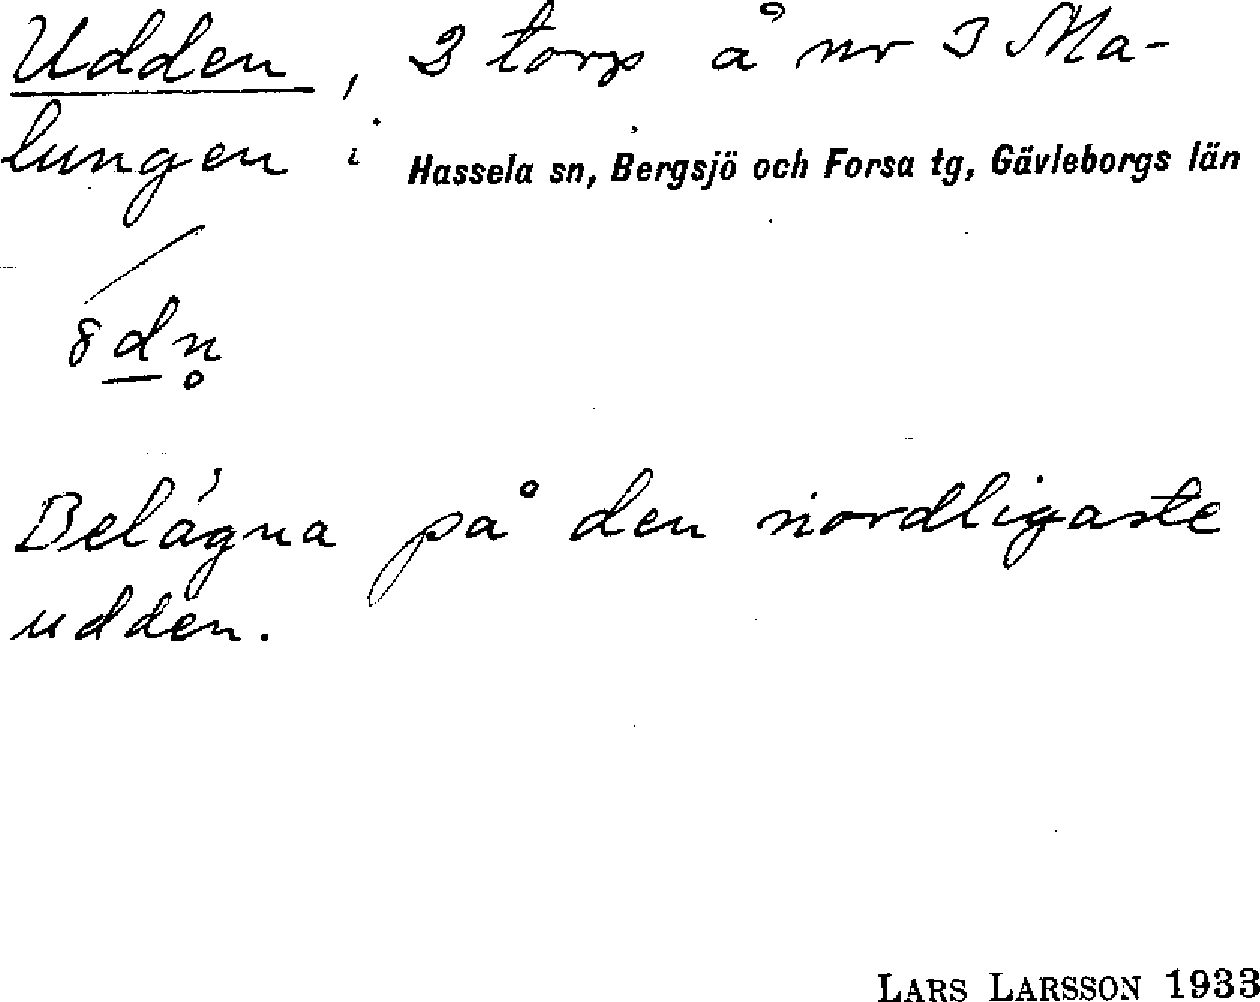 Udden, 2 torp å nr 3 Ma-
lungen i Hassela sn, Bergsjö och Forsa tg, Gävleborgs län
Belägna på den nordligaste
udden.
LARS LARSSON 1933